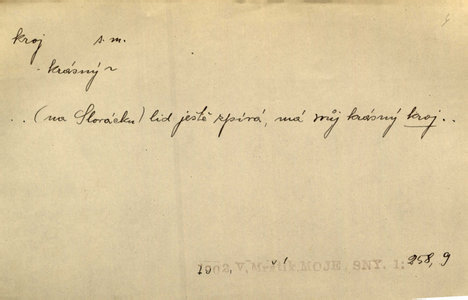 kroj s. m.
- krásný ~
.. (na Slovácku) lid ještě zpívá, má svůj krásný kroj..
1902, V. Mrštík MOJE SNY. 1: 258, 9